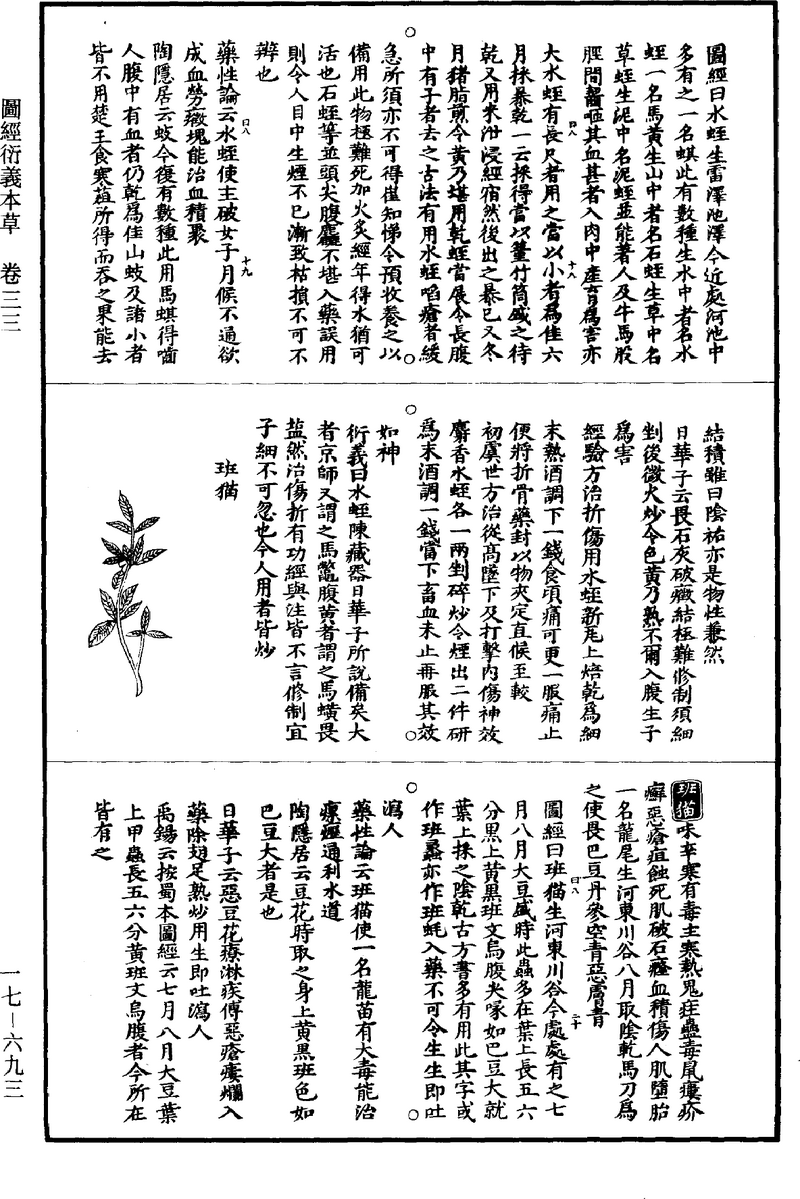 圖經衍義本草　卷三三
一七－六九三
圖經曰水蛭生雷澤池澤今近處河池中
多有之一名蜞此有數種生水中者名水
蛭一名馬黃生山中者名石蛭生草中名
草蛭生泥中名泥蛭並能著人及牛馬股
脛間齧咂其血甚者入肉中產育為害亦
大水蛭有長尺者用之當以小者為佳六
月採暴乾一云採得當以䈽竹筒盛之待
乾又用米泔浸經宿然後出之暴已又冬
月猪脂煎令黃乃堪用乾蛭當展令長腹
中有子者去之古法有用水蛭啗瘡者緩
急所須亦不可得崔知悌令預收養之以
備用此物極難死加火炙經年得水猶可
活也石蛭等並頭尖腹麤不堪入藥誤用
則令人目中生煙不已漸致枯損不可不
辨也
藥性論云水蛭使主破女子月候不通欲
成血勞癥塊能治血積聚
陶隱居云蚑今復有數種此用馬蜞得嚙
人腹中有血者仍乾為佳山蚑及諸小者
皆不用楚王食寒葅所得而吞之果能去
結積雖曰陰祐亦是物性兼然
日華子云畏石灰破癥結極難修制須細
剉後微火炒令色黃乃熟不爾入腹生子
為害
經驗方治折傷用水蛭新瓦上焙乾為細
末熱酒調下一錢食頃痛可更一服痛止
便將折骨藥封以物夾定直候至較
初虞世方治從高墜下及打擊內傷神效
麝香水蛭各一兩剉碎炒令煙出二件研
為末酒調一錢當下畜血未止再服其效
如神
衍義曰水蛭陳藏器日華子所說備矣大
者京師又謂之馬鼈腹黃者謂之馬蟥畏
盐然治傷折有功經與注皆不言修制宜
子細不可忽也今人用者皆炒
班猫
班猫味辛寒有毒主寒熱鬼疰蠱毒鼠瘻疥
癬惡瘡疽蝕死肌破石癃血積傷人肌墮胎
一名龍尾生河東川谷八月取陰乾馬刀為
之使畏巴豆丹參空青惡膚青
圖經曰班猫生河東川谷今處處有之七
月八月大豆盛時此蟲多在葉上長五六
分黑上黃黑班文烏腹尖喙如巴豆大就
葉上採之陰乾古方書多有用此其字或
作班蟊亦作班蚝入藥不可令生生即吐
瀉人
藥性論云班猫使一名龍苗有大毒能治
瘰癧通利水道
陶隱居云豆花時取之身上黃黑班色如
巴豆大者是也
日華子云惡豆花療淋疾傅惡瘡瘻爛入
藥除翅足熟炒用生即吐瀉人
禹錫云按蜀本圖經云七月八月大豆葉
上甲蟲長五六分黃班文烏腹者今所在
皆有之